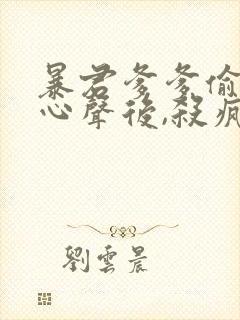 暴君爹爹偷
心聲後,殺瘋
劉雲晨